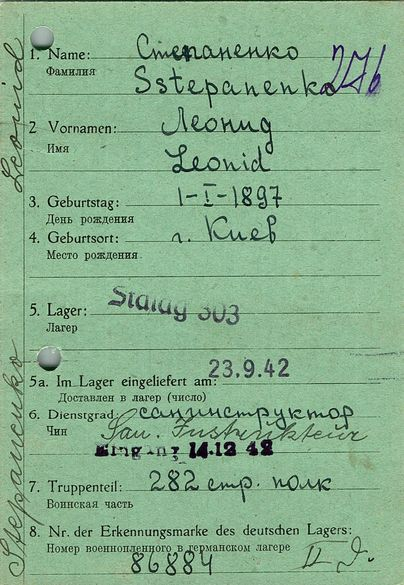 1. Name: Степаненко
Фамилия
Sstepanenko 276
2 Vornamen: Леонид
Имя
Leonid
3. Geburtstag: 1-I-1897
День рождения
4. Geburtsort: г. Киев
Место рождения
5. Lager: Stalag 303
Лагер
5a. Im Lager eingeliefert am: 23.9.42
Доставлен в лагер (число)
6. Dienstgrad: санинструктор
Чин San.
Eingang 14.12 42
7. Truppenteil: 282 стр. полк
Воинская часть
8. Nr. der Erkennungsmarke des deutschen Lagers:
Номер военнопленного в германском лагере
86884 II
Stepanenko Leonid